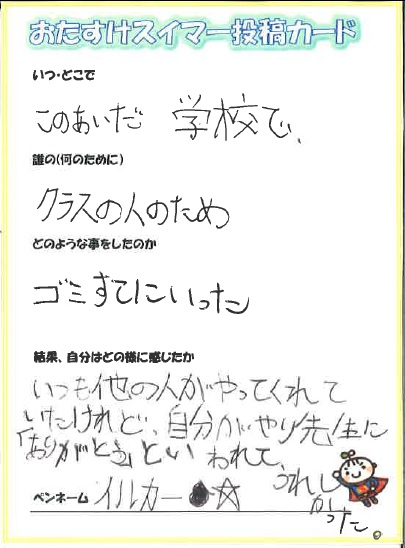 おたすけスイマー投稿カード
いつ・どこで
このあいだ 学校で、
誰の(何のために)
クラスの人のため
どのような事をしたのか
ゴミすてにいった
結果、自分はどの様に感じたか
いつも他の人がやってくれて
いたけれど、自分がやり先生に
「ありがとう」といわれて、
うれし
かった。
ペンネーム イルカー●☆